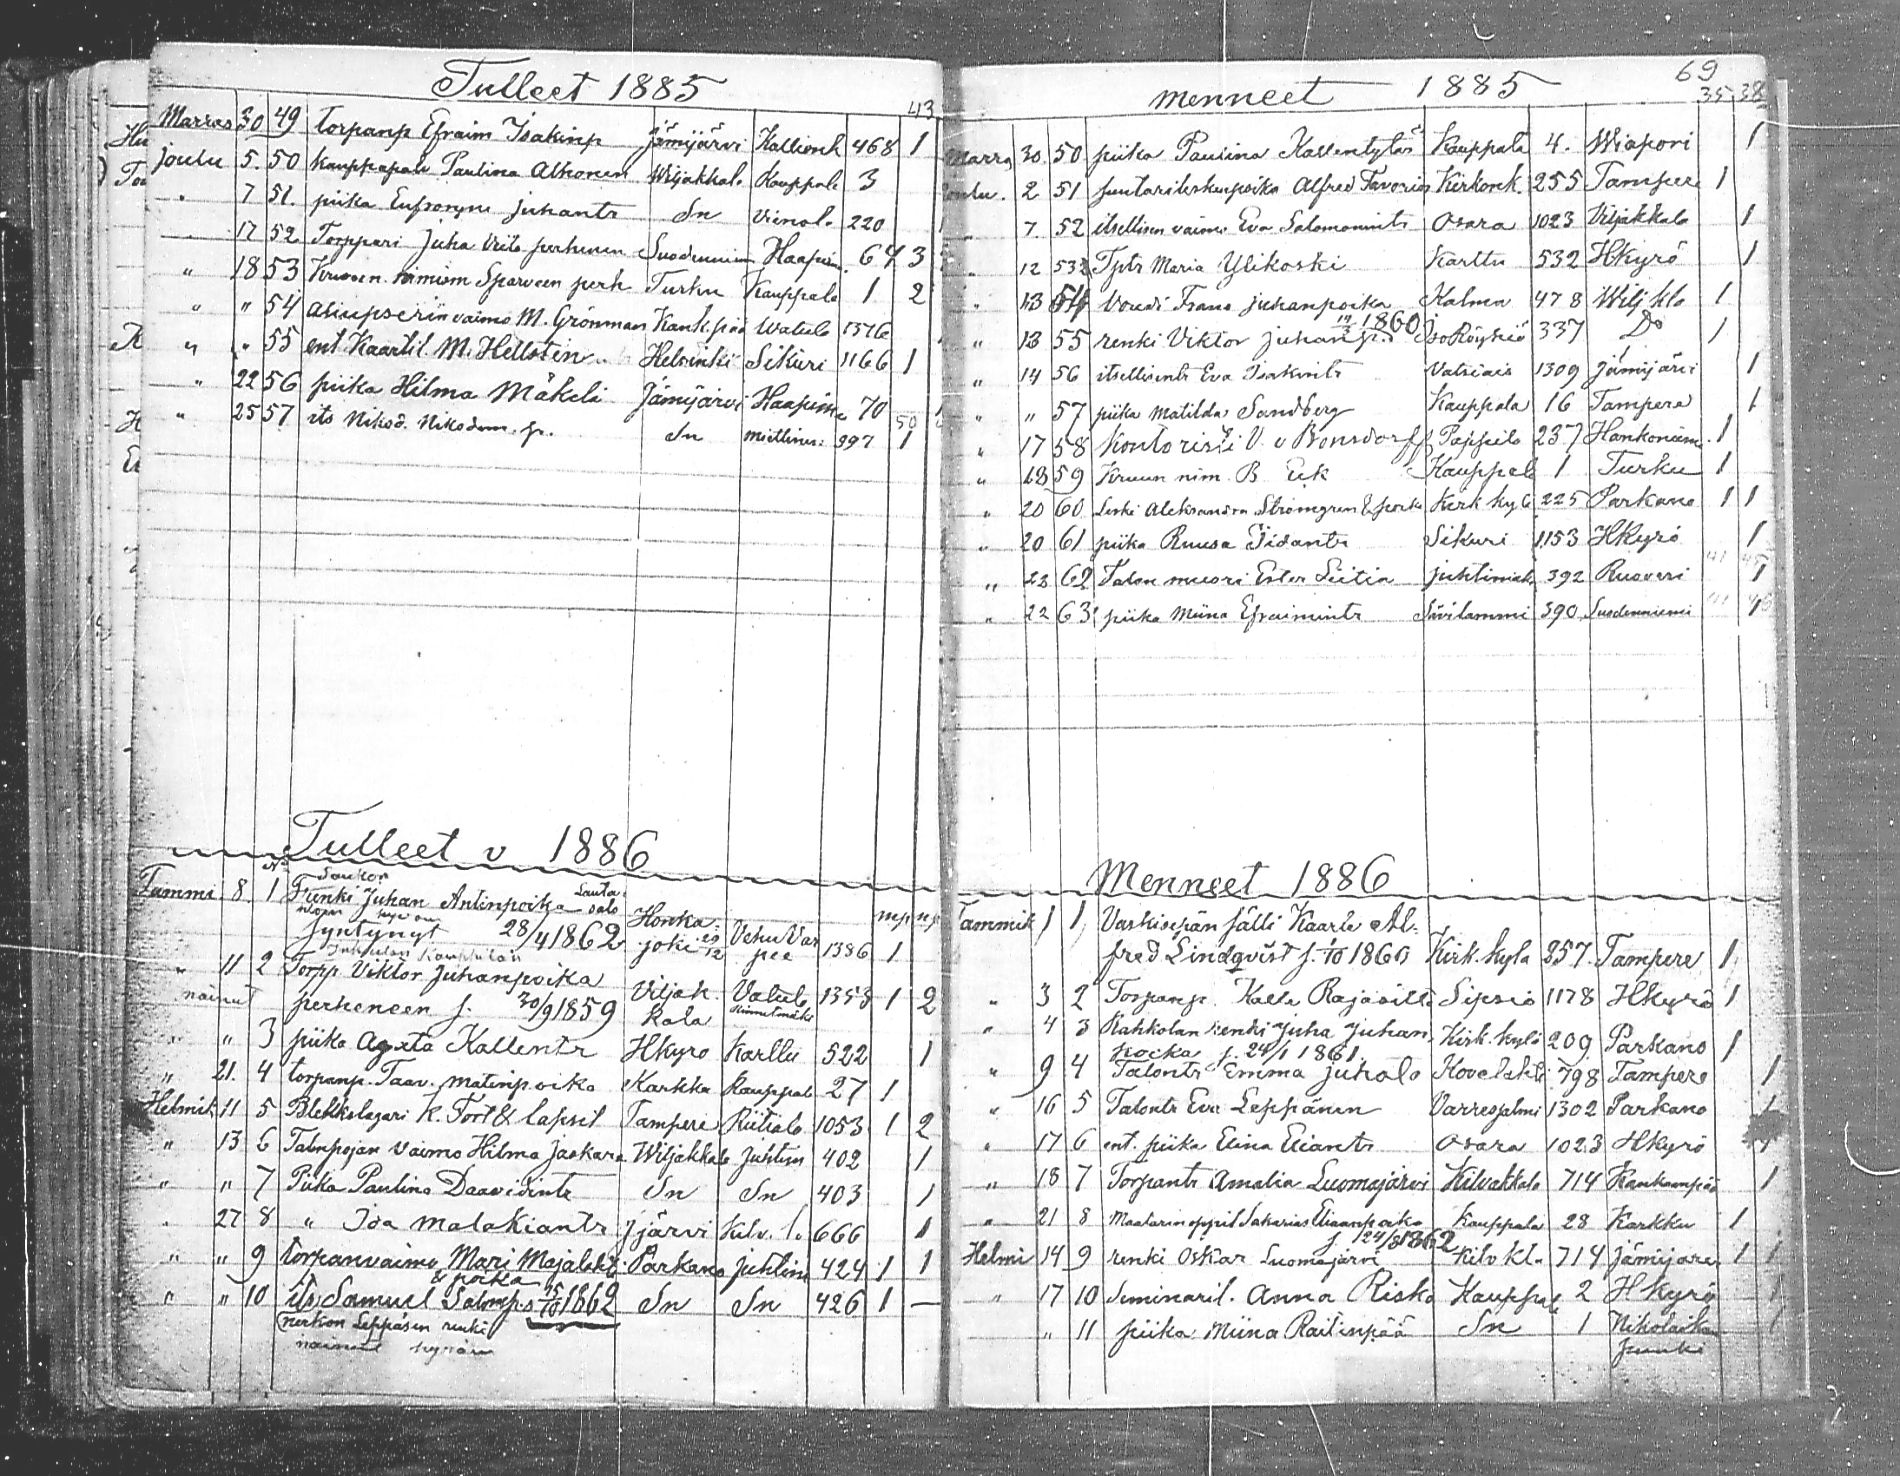 Tulleet 1885
43
Marras 30 49 torpanp Efraim Isakinp Jämijärvi Kallionk 468 1
Joulu 5. 50 kauppapalv Paulina Alhonen Wiljakkala Kauppala 3
" 7 51. piika Eufrosyne Juhantr Sn Vinol. 220
17 52 Torppari Juha Viita perheineen Suodenniemi Haapim. 64 3
" 18 53 Kruunun nimism Sparveen perh Turku Kauppala 1 2
" " 54 vaimo M. Grönman Kank.pää Watula 1376
" " 55 ent Kaartil. M. Hellsten Helsinki Sikuri 1166 1
" 22 56 piika Hilma Mäkelä Jämijärvi Haapim 70
50
" 25 57 its Nikod. Nikodem. p. Sn miettinen 997 1
Tulleet v 1886
No
Tammi 8. 1 Renki Juhan Antinpoika Lautasalo
syntynyt 28/4 1862 Honkajoki Vehuvarpee 1386 1
mp np
" 11 2 Torpp Viktor Juhanpoika Viljakkala Vatula 1358 1 2
nainut perheneen s. 30/9 1859
" " 3 piika Agata Kallentr HKyrö Karttu 522 1
" 21. 4 torpanp. Taav. Matinpoika Karkku Kauppal 27 1
Helmik 11 5 Blekkslagari K. Fort & lapset Tampere Riitiala 1053 1 2
" 13 6 Talonpojan vaimo Hilma Jaakara Wiljakkala Juhtim 402 1
" " 7 Piika Paulina Daavidintr Sn Sn 403 1
" 27 8 " Ida Malakiantr Jjärvi Kilv. l. 666 1
" " 9 torpanvaimo Mari Majalahti Parkano Juhtim 424 1 1
& poika
" " 10 its Samuel Salomp. s 15/10 1862 Sn Sn 426 1 —
Leppäsen renki
nainut
69
menneet 1885
35 38
Marras 30. 50 piika Paulina Kallentytär Kauppala 4. Wiapori 1
Joulu. 2 51 suutarileskenpoika Alfred Favorin Kirkonk. 255 Tampere 1
7. 52 itsellisen vaimo Eva Salomonintr Osara 1023 Viljakkala 1
" 12 53 Tptr Maria Ylikoski Karttu 532 HKyrö 1
" 13 54 Voudi Frans Juhanpoika Kalmaa 478 Wiljkla 1
" 13 55 renki Viktor Juhanp. 19/3 1860 Iso Röyhiö 337 Do 1
" 14 56 itsellisentr Eva Isakintr Vatsiais 1309 Jämijärvi 1
" " 57 piika Matilda Sandberg Kauppala 16 Tampere 1
" 17 58 Kontoristi V. v Bonsdorff Pappila 237 Hankoniem. 1
" 18 59 Kruun nim. B. Eek Kauppala 1 Turku 1
" 20 60 Leski Aleksandra Strömgren & poika Kirk kylä 225 Parkano 1 1
" 20 61 piika Ruusa Iidantr Sikuri 1153 HKyrö 1
" 22 62 Talon muori Ester Leitin Juhtimäk 392 Ruovesi 1
" 22 63 piika Miina Efraimintr Sävilammi 590 Suodenniemi 1
Menneet 1886
Tammik 1 1 Vaskisepän sälli Kaarle Al-
fred Lindqvist s. 1/10 1860 Kirk. kylä 257. Tampere 1
" 3 2 Torpanp. Kalle Rajasilta Sipsiö 1178 HKyrö 1
" 4 3 Rahkolan renki Juha Juhan- Kirk. kylä 209 Parkano 1
poika s. 24/1 1861
" 9 4 Talontr Emma Juhola Kovelahti 798 Tampere 1
" 16 5 Talontr Eva Leppänen Varresjalmi 1302 Parkano 1
" 17 6 ent. piika Elina Eliantr Osara 1023 HKyrö 1
" 18 7 Torpantr Amalia Luomajärvi Kilvakkala 714 Kankaanpää 1
" 21 8 Maalarin oppil Sakarias Eliaanpoika Kauppala 28 Karkku 1
s. 24/8 1862
Helmi 14 9 renki Oskar Luomajärvi Kilv kl. 714 Jämijärvi 1 1
" 17 10 Seminaril. Anna Risko Kauppal 2 HKyrö 1
" 11 piika Miina Raitinpää Sn 1 Nikolainkaupunki 1